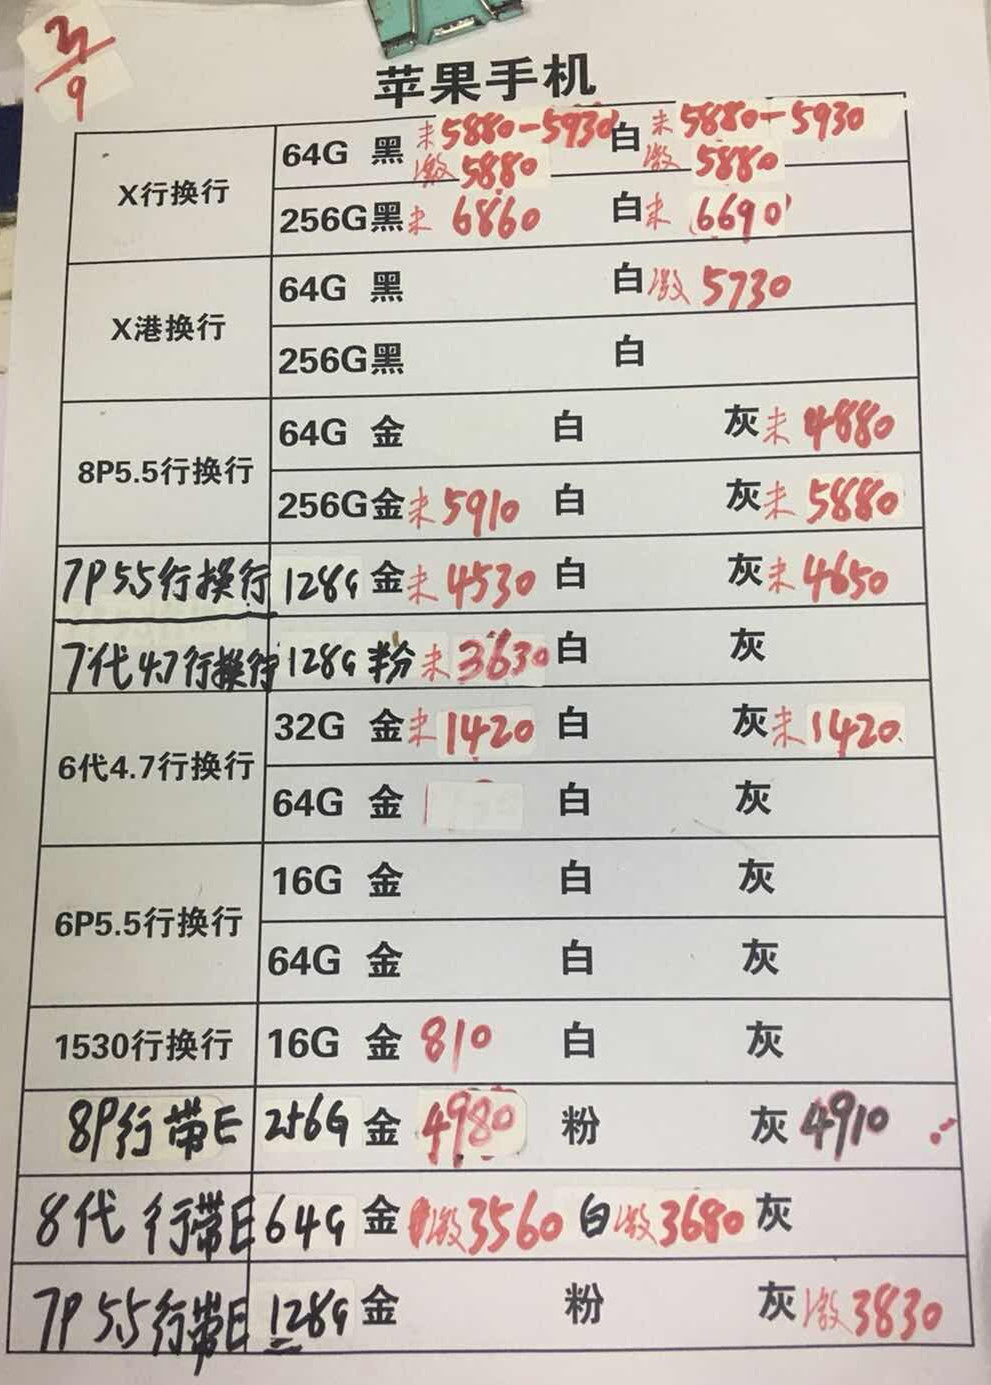 3/9
苹果手机
X行换行 64G 黑 未5880-5930 白 未5880-5930
激5880 激5880
256G黑未 6860 白未 6690
X港换行 64G 黑 白激 5730
256G黑 白
8P5.5行换行 64G 金 白 灰未 4880
256G金未5910 白 灰未 5880
7P 5.5行换行 128G 金未4530 白 灰未4650
7代4.7行换行 128G 粉未3630 白 灰
6代4.7行换行 32G 金未1420 白 灰未1420
64G 金 白 灰
6P5.5行换行 16G 金 白 灰
64G 金 白 灰
1530行换行 16G 金 810 白 灰
8P行带E 256G 金 4980 粉 灰 4910
8代 行带E 64G 金 激3560 白激3680 灰
7P 5.5行带E 128G 金 粉 灰激3830